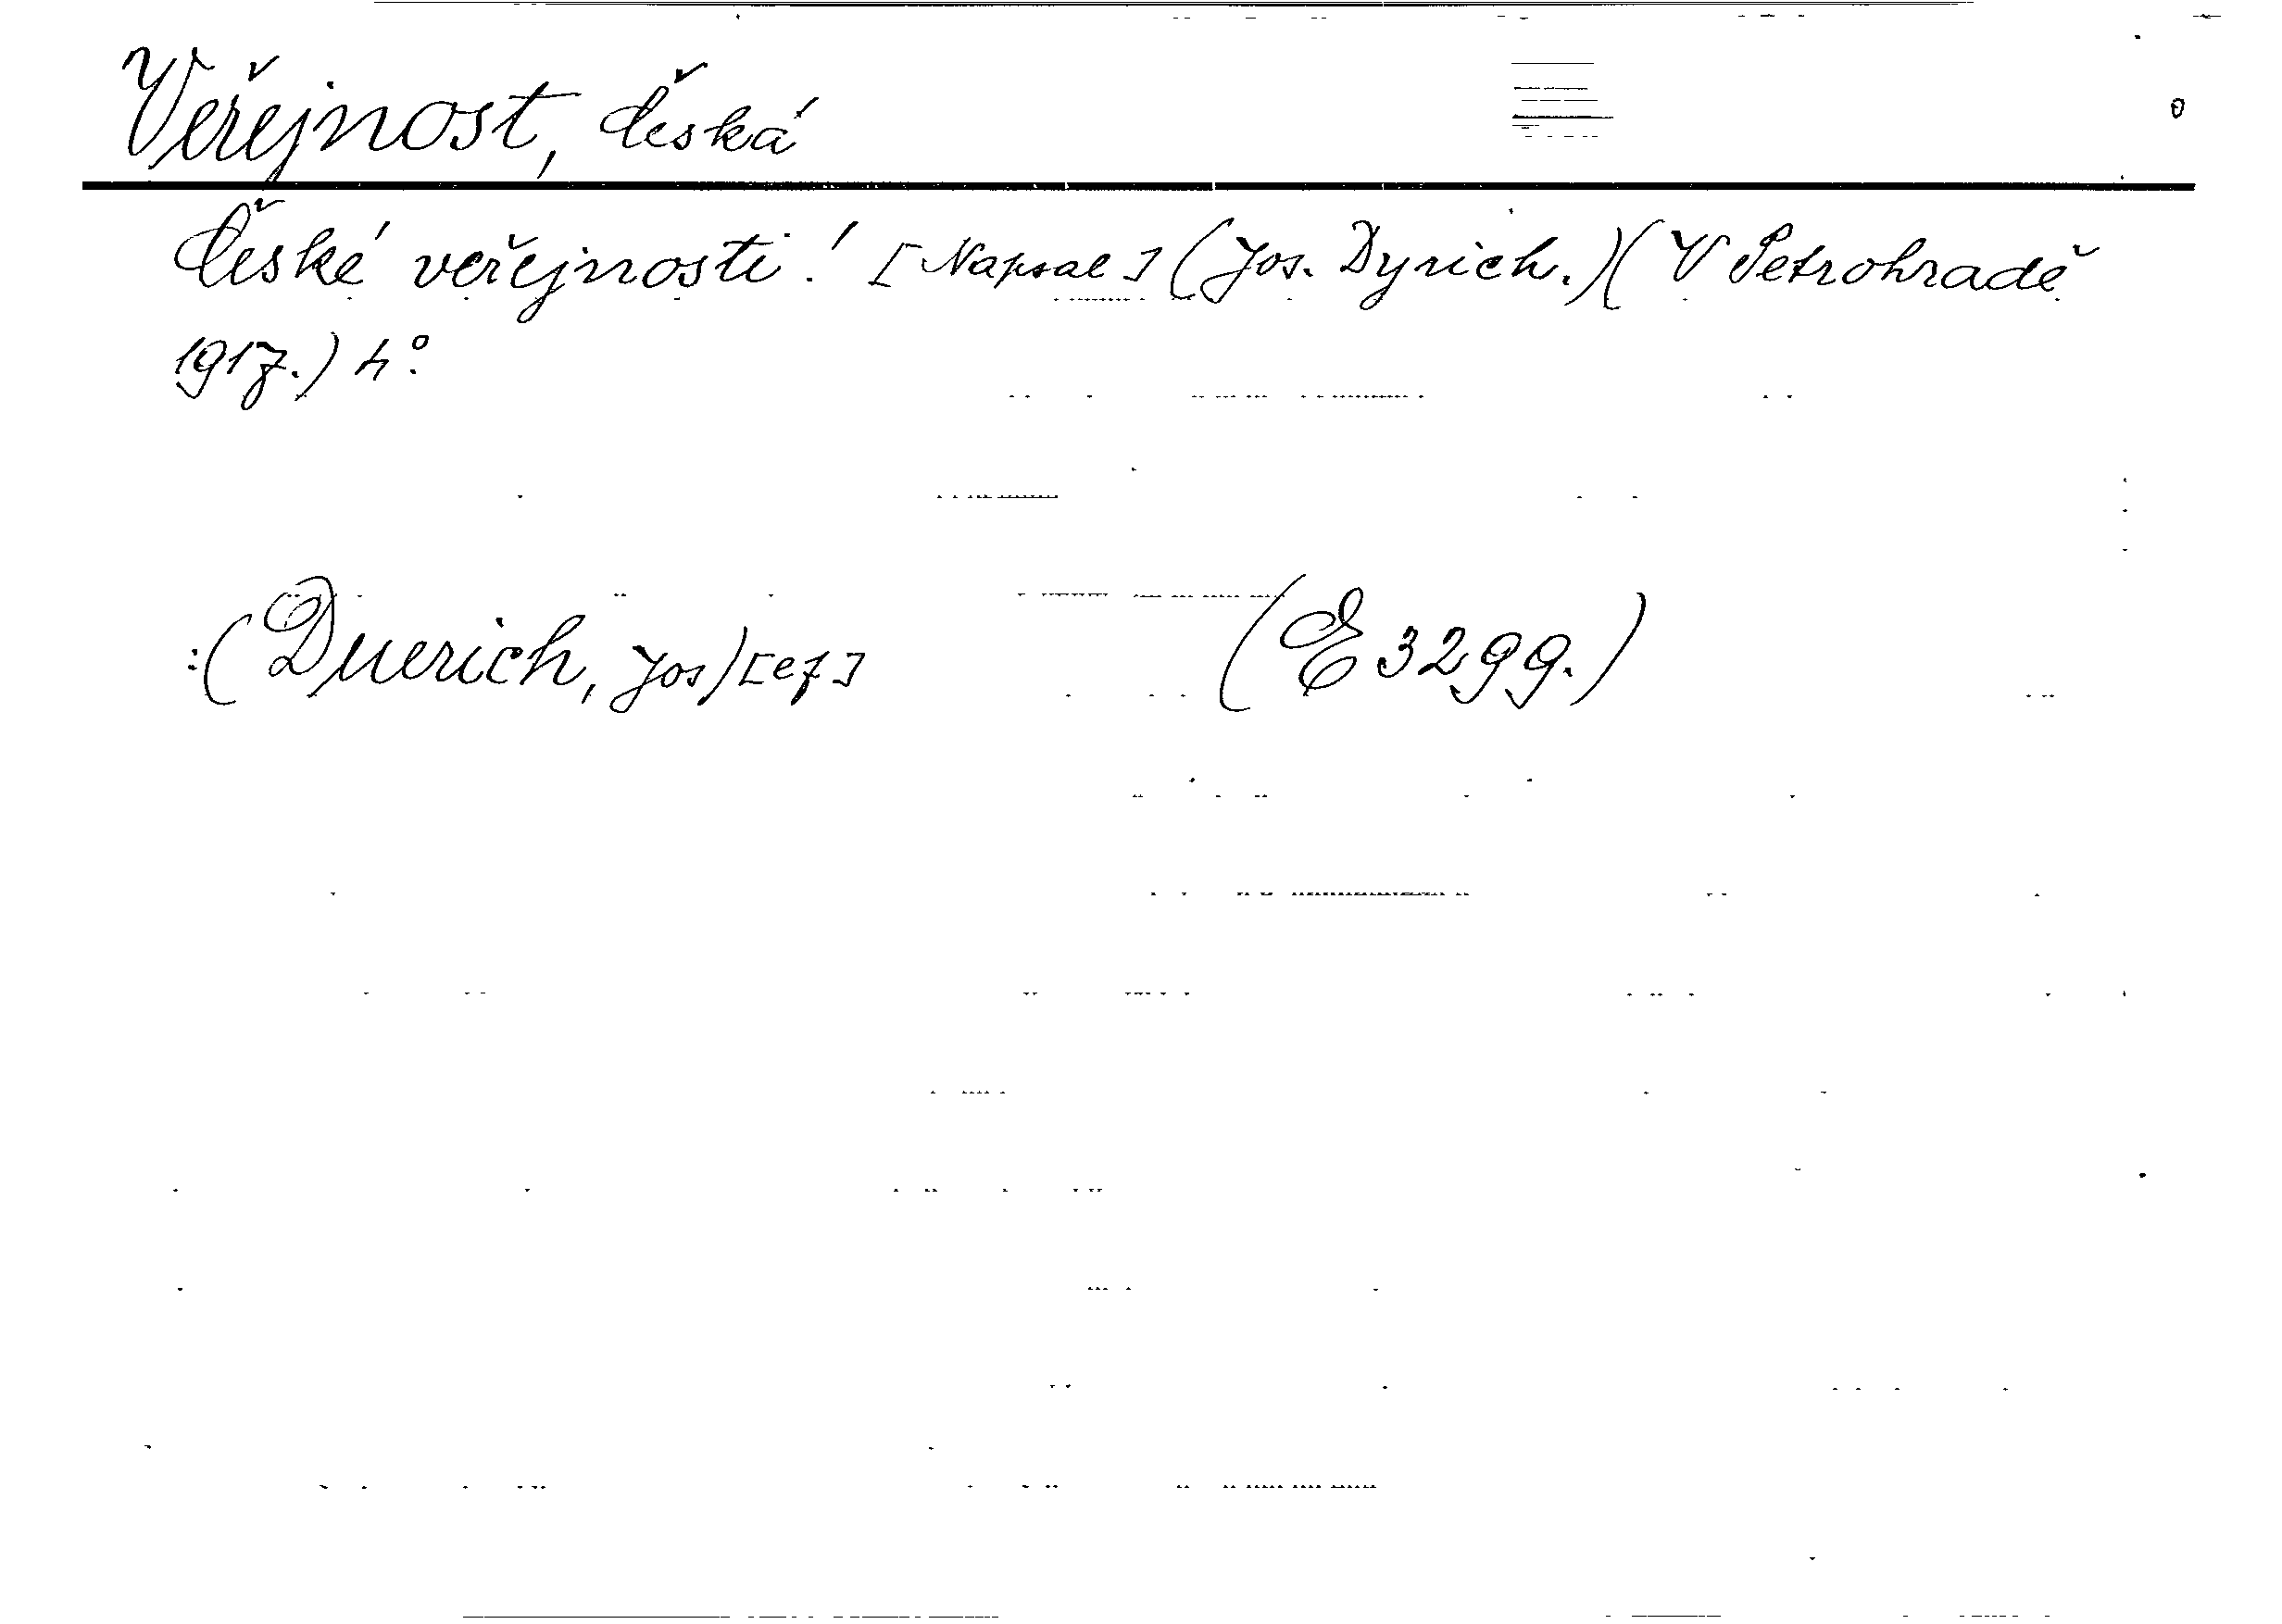 Veřejnost, česká
České veřejnosti! [Napsal] (Jos. Dyrich.)(V Petrohradě
1917.) 4°.
:(Duerich, Jos)[ef] (E 3299.)